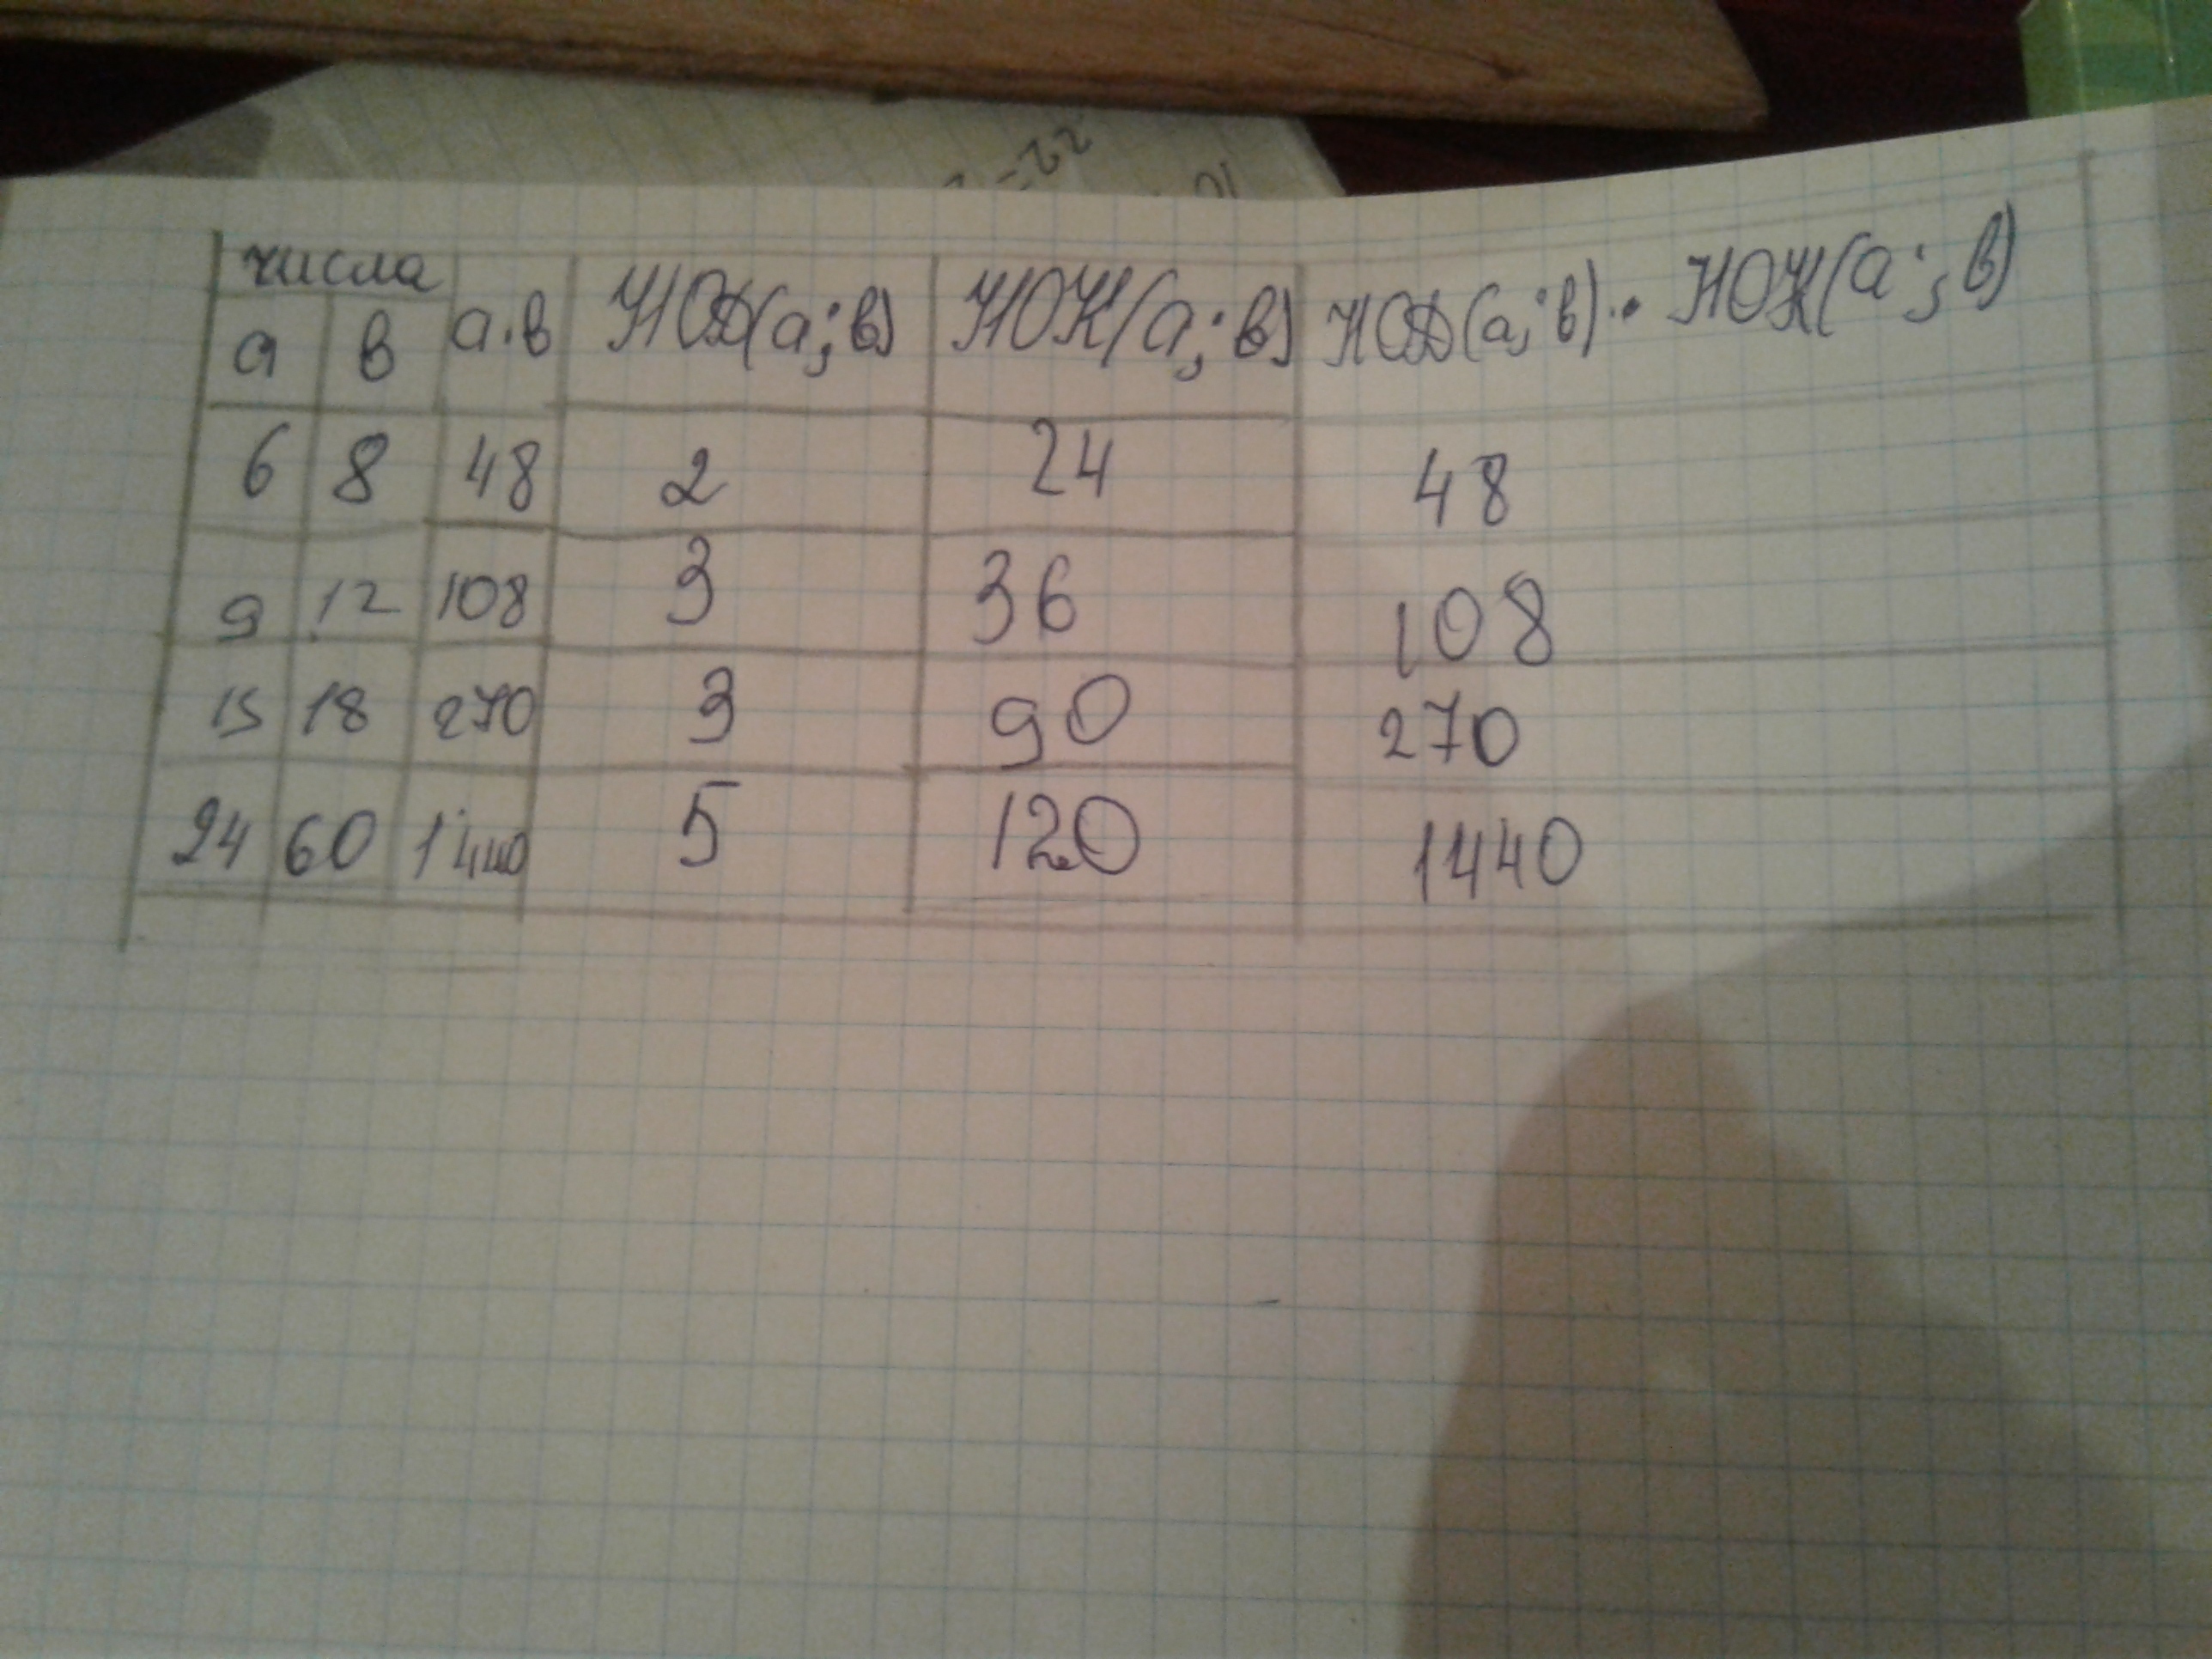 числа
а в а·в НОД(а;в) НОК(а;в) НОД(а;в)· НОК(а;в)
6 8 48 2 24 48
9 12 108 3 36 108
15 18 270 3 90 270
24 60 1440 5 120 1440